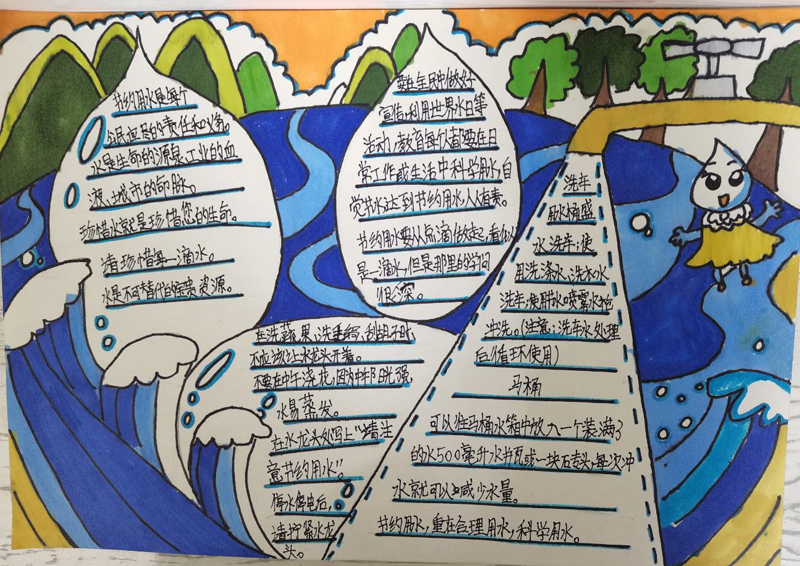 节约用水是每个
公民应尽的责任和义务。
水是生命的源泉、工业的血
液、城市的命脉。
珍惜水就是珍惜您的生命。
请珍惜每一滴水。
水是不可替代的宝贵资源。
要在全民中做好
宣传,利用世界水日等
活动,教育每个人都要在日
常工作或生活中科学用水,自
觉节水达到节约用水人人有责。
节约用水要从点滴做起,看似
是一滴水,但是那里的学问
很深。
在洗蔬果、洗手
不应该让水龙头开着。
不要在中午浇花,因为中午阳光强,
水易蒸发。
在水龙头处写上“请注
意节约用水”。
停水停电后,
请拧紧水龙
头。
洗车
用水桶盛
水洗车;使
用洗涤水、洗衣水
洗车;使用水喷雾水枪
冲洗。(注意:洗车水处理
后循环使用)
马桶
可以在马桶水箱中放入一个装满了
的水500毫升水书瓦或一块石专头,每次冲
水就可以减少水量。
节约用水,重在合理用水,科学用水。